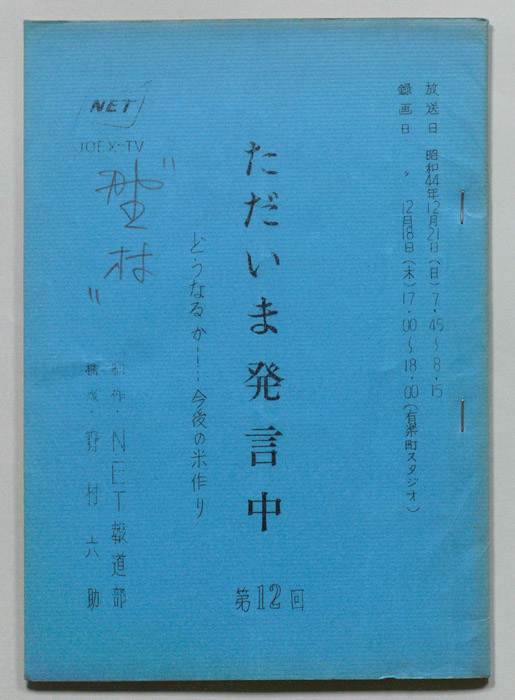 放送日 昭和44年12月21日(日)7.45~8.15
録画日 〃 12月18日(木)17.00~18.00(有楽町スタジオ)
ただいま発言中
第12回
どうなるか―!…今後の米作り
NET
JOEX-TV
"野村"
制作・NET報道部
構成・野村六助